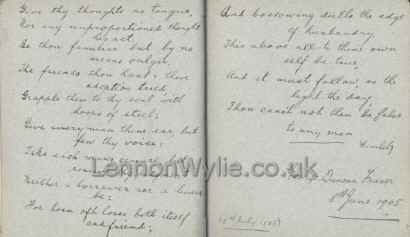 Give thy thoughts no tongue,
Nor any unproportioned thought
his act.
Be thou familiar but by no
means vulgar.
The friends thou hast & their
adoption tried
Grapple them to thy soul with
hoops of steel;
Give every man thine ear, but
few thy voice;
Take each
Neither a borrower nor a lender
be;
For loan oft loses both itself
and friend;
And borrowing dulls the edge
of husbandry.
This above all to thine own
self be true,
And it must follow, as the
night the day,
Thou canst not then be false
to any man
Hamlet
Duncan Fraser
8th June 1905
LennonWylie.co.uk